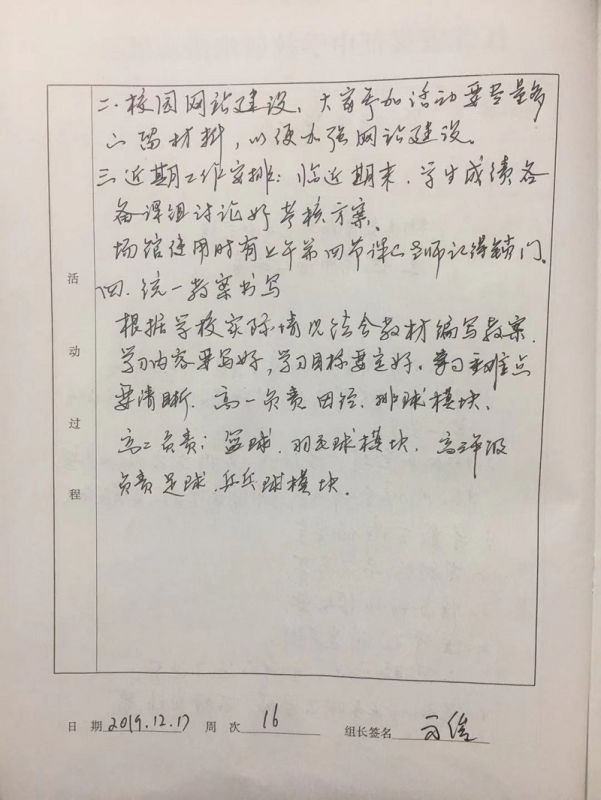 二.校园网站建设,大家参加活动要尽量多
留材料,以便加强网站建设。
三.近期工作安排:临近期末.学生成绩各
备课组讨论好考核方案.
场馆使用时有上午第四节课的老师记得锁门.
四.统一教案书写
根据学校实际情况结合教材编写教案.
学习内容要写好,学习目标要定好.学习重难点
要清晰.高一负责田径.排球模块.
高二负责:篮球.羽毛球模块.高三年级
负责足球.乒乓球模块.
活动过程
日 期 2019.12.17 周 次 16 组长签名